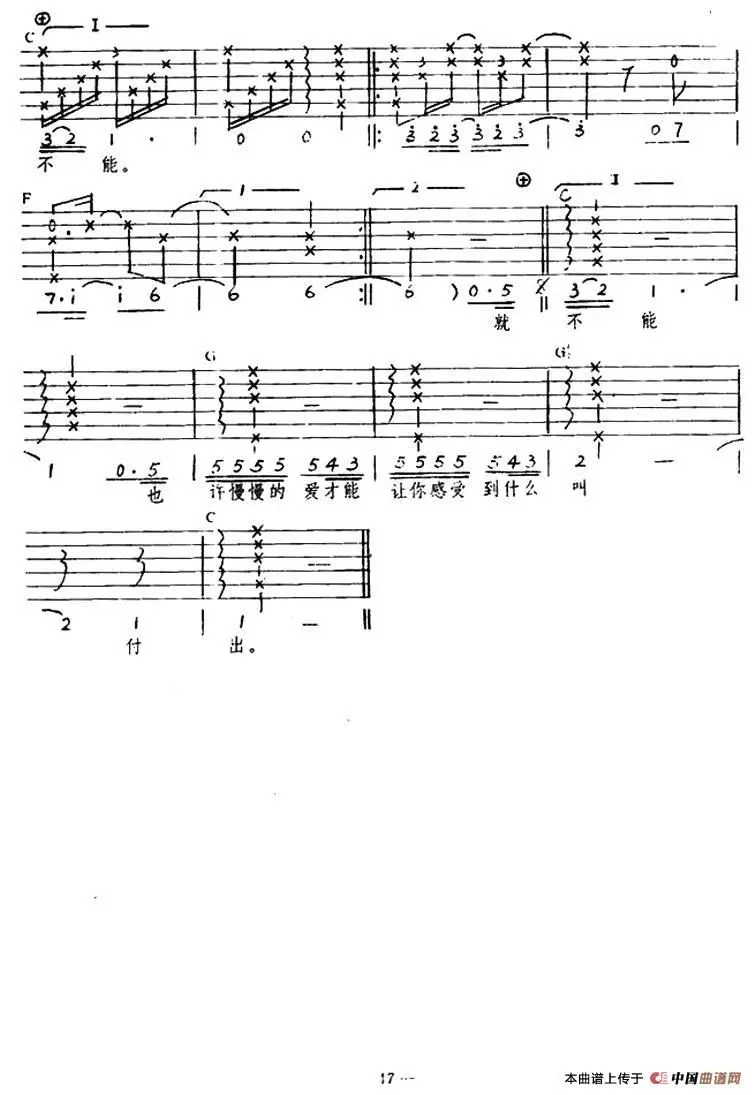 C I
3 2 1 · 0 0 3 2 3 3 2 3 3 0 7
不 能。
F 1 2 C II
7 · i i 6 6 6 6 ) 0 · 5 3 2 1 ·
就 不 能
G G
1 0 · 5 5 5 5 5 5 4 3 5 5 5 5 5 4 3 2 —
也 许慢慢的 爱才能 让你感受 到什么 叫
C
2 1 1 —
付 出。
17
本曲谱上传于 中国曲谱网